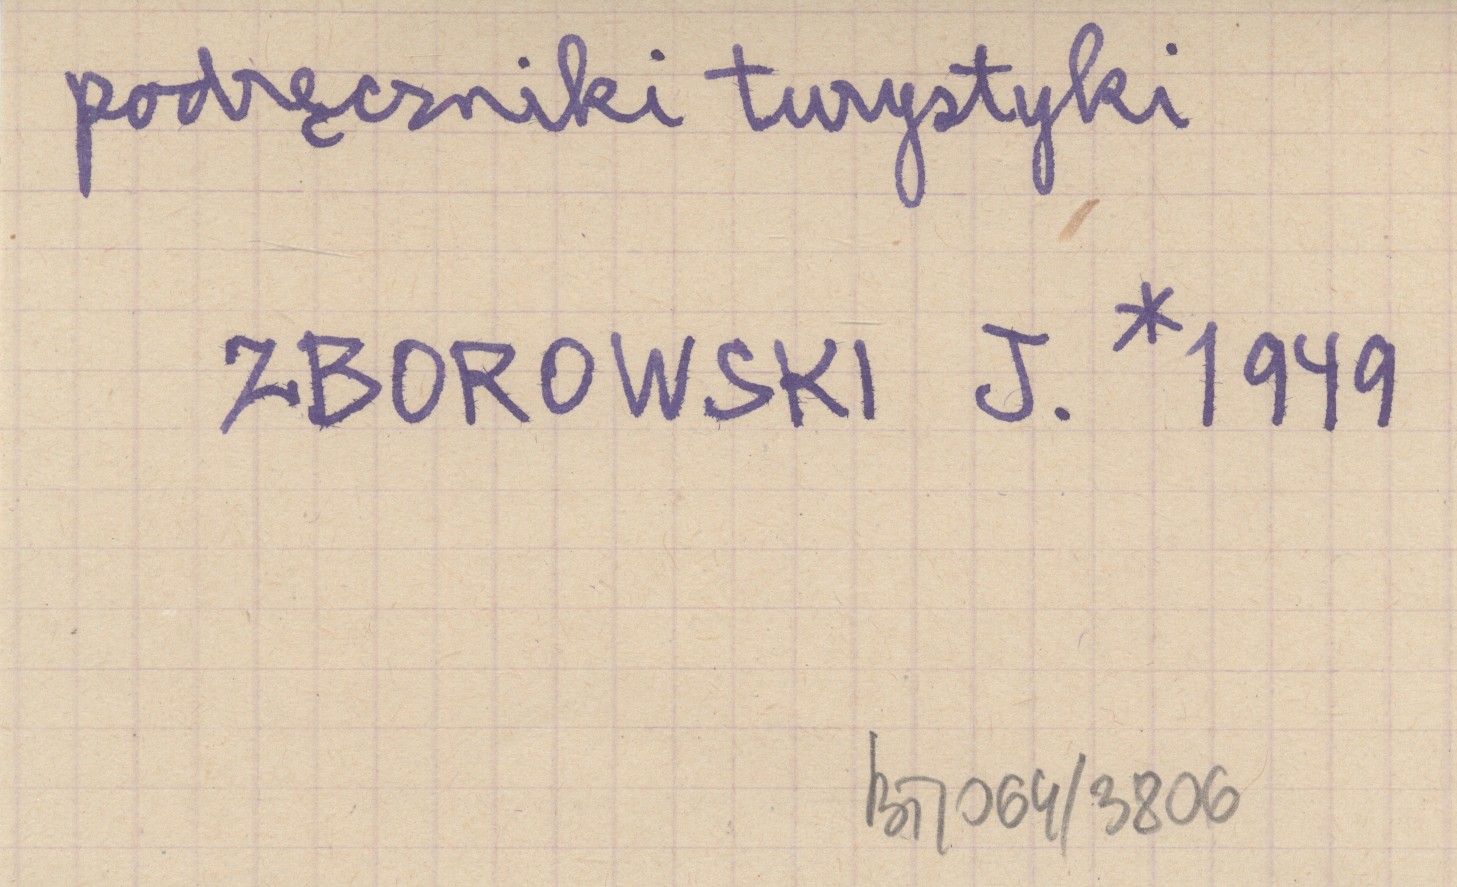 podręczniki turystyki
ZBOROWSKI J. *1949
064/3806